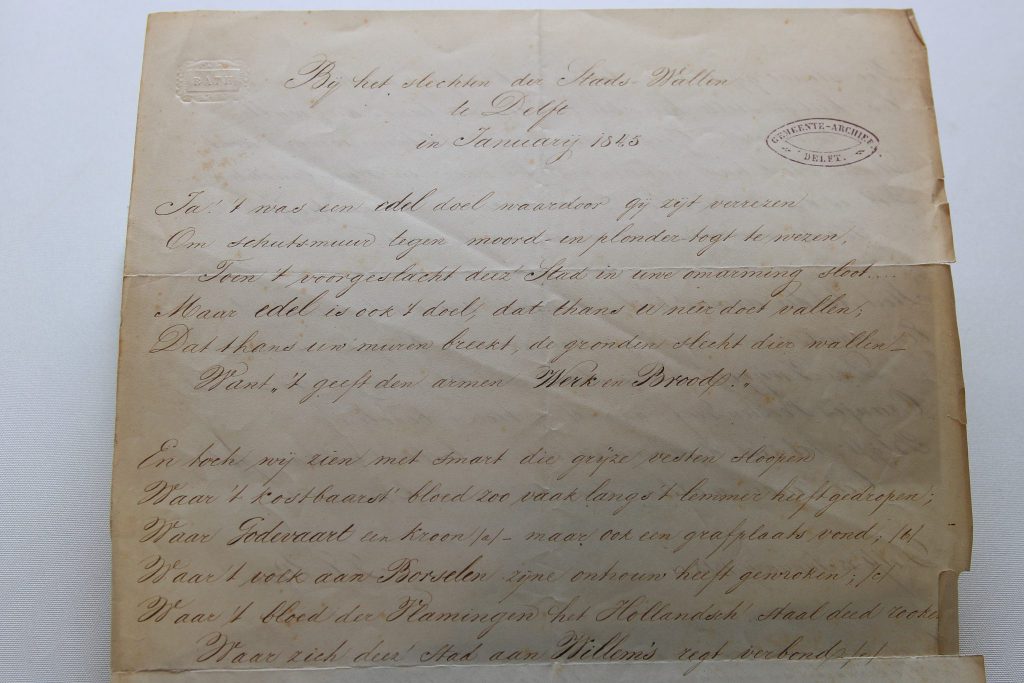 BATH
Bij het slechten der Stads-Wallen
te Delft
in Januarij 1845
GEMEENTE-ARCHIEF
DELFT.
Ja! 't was een edel doel waardoor gij zijt verrezen
Om schutsmuur tegen moord- en plonder-togt te wezen,
Toen 't voorgeslacht deez' Stad in uwe omarming sloot....
Maar edel is ook 't doel, dat thans u neêr doet vallen;
Dat thans uw muren breekt, de gronden slecht dier wallen –
Want „'t geeft den armen Werk en Brood!„
En toch wij zien met smart die grijze vesten sloopen
Waar 't kostbaarst' bloed zoo vaak langs 't lemmer heeft gedropen;
Waar Godevaart een kroon /a/ – maar ook een grafplaats vond; /b/
Waar 't volk aan Borselen zijne ontrouw heeft gewroken; /c/
Waar 't bloed der Vlamingen het Hollandsch' staal deed rooken
Waar zich deez' stad aan Willem's regt verbond